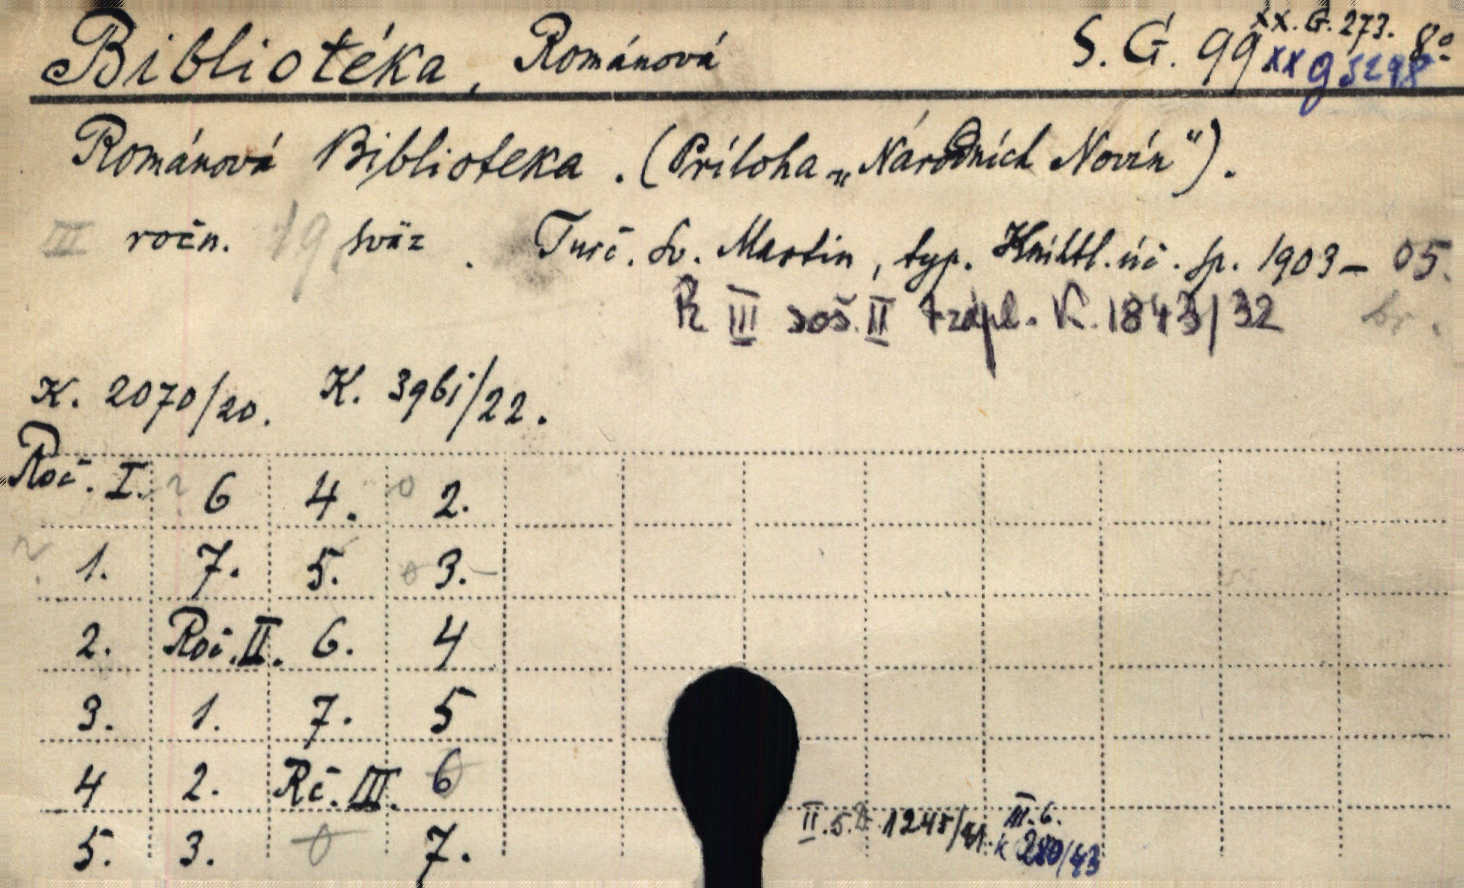 Bibliotéka, Románová S. G. 99 XX. G. 273. 8°
XX g 5298
Románová Biblioteka. (Príloha „Národních Novín").
III ročn. 19 sväz. Turč. Sv. Martin, typ. Kníhtl. úč. sp. 1903– 05.
R III soš. II K. 1843/32 br.
K. 2070/20. K. 3961/22.
Roč. I. 6 4. 0 2.
1. 7. 5. 0 3.–
2. Roč. II. 6. 4
3. 1. 7. 5
4 2. Rč. III. 6
5. 3. 0 7.
II.5. 1245/41. III.6.
K 280/43